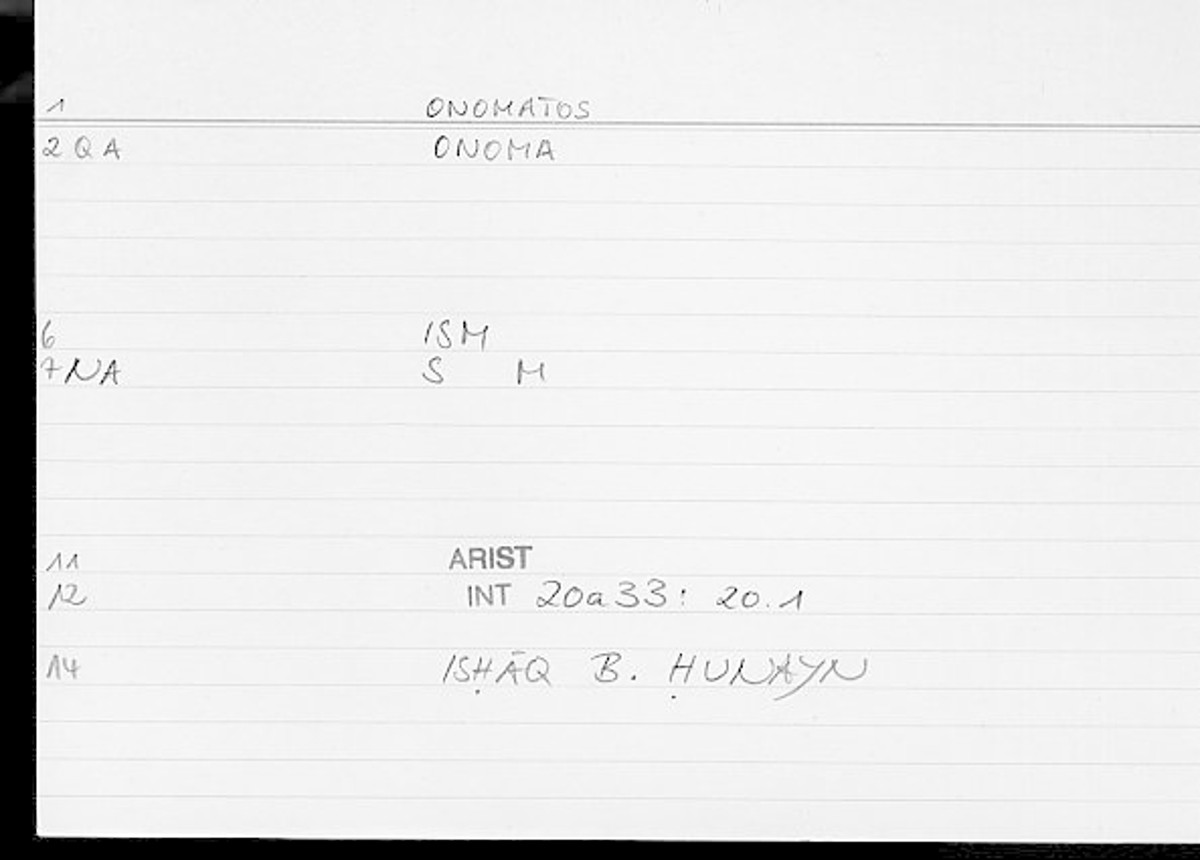 1 ONOMATOS
2 Q A ONOMA
6 ISM
7 NA S M
11 ARIST
12 INT 20a33: 20.1
14 ISḤĀQ B. ḤUNAYN